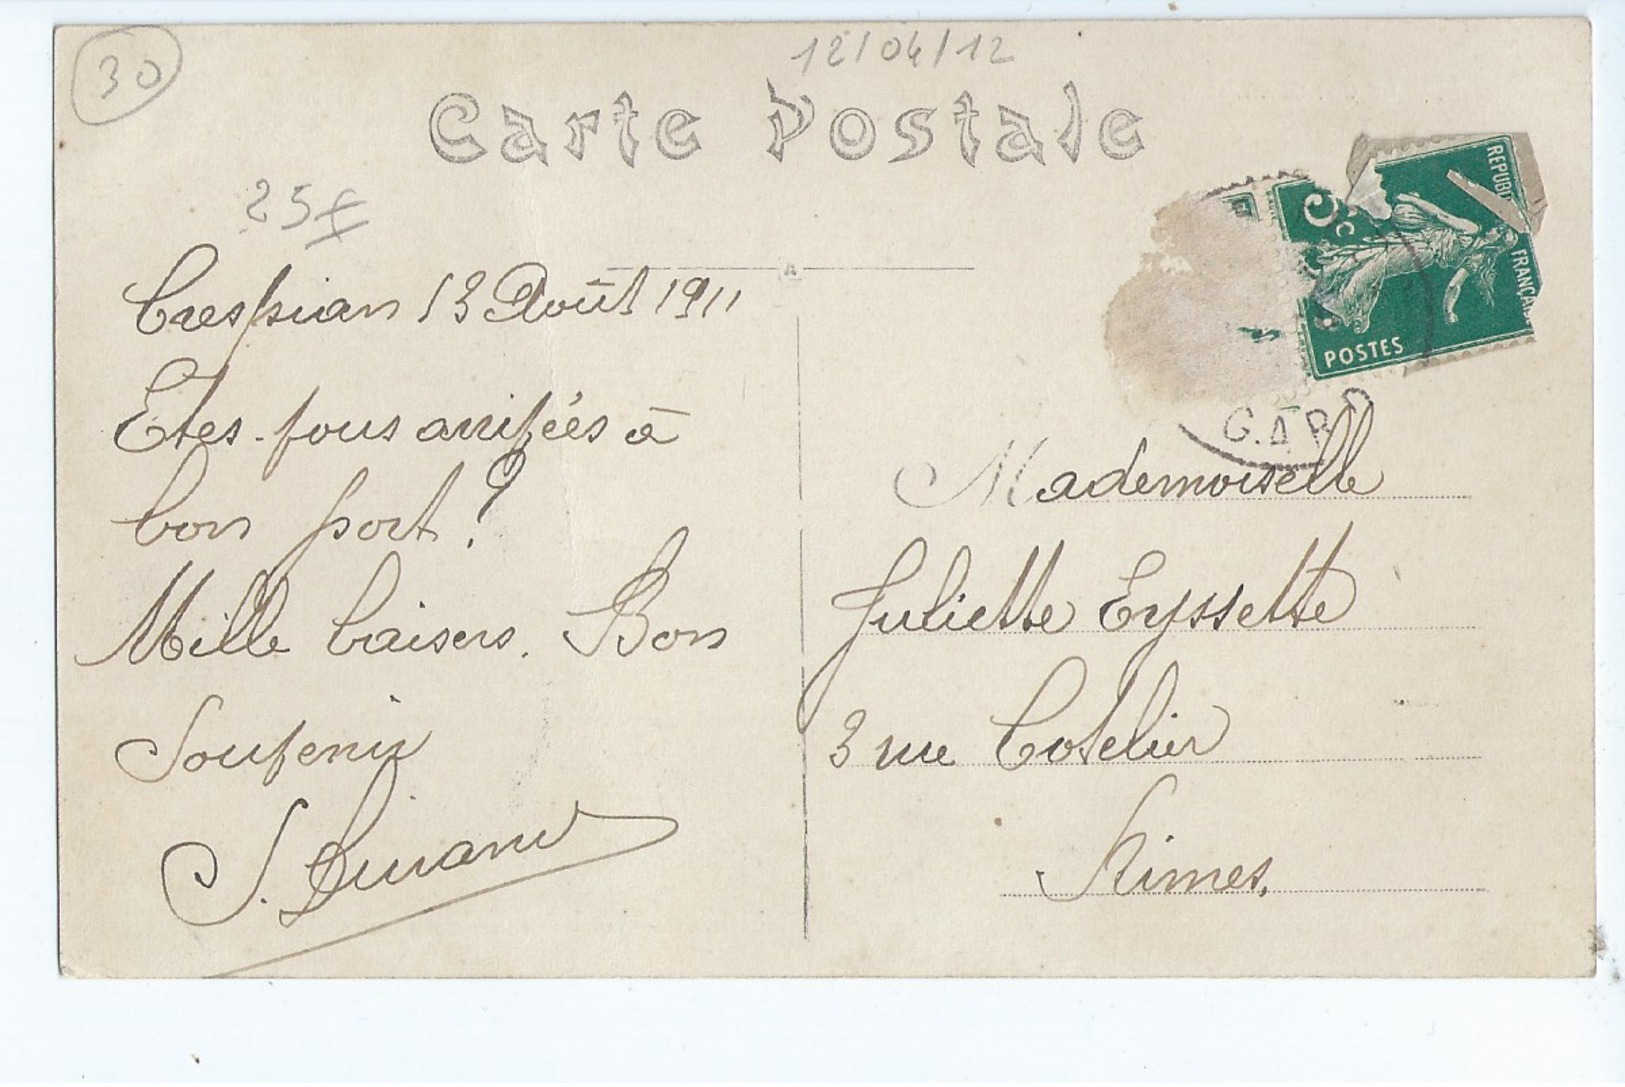 30
12/04/12
Carte Postale
25f
Crespian 13 Août 1911
Etes-vous arrivées à
bon port ?
Mille baisers. Bon
Souvenir
REPUB
FRANÇAI
5c
POSTES
GARD
Mademoiselle
Juliette Eyssette
3 rue Cotelier
Nimes.